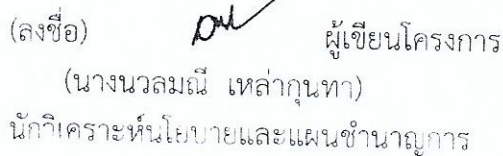 (ลงชื่อ) ผู้เขียนโครงการ
(นางนวลมณี เหล่ากุนทา)
นักวิเคราะห์นโยบายและแผนชำนาญการ